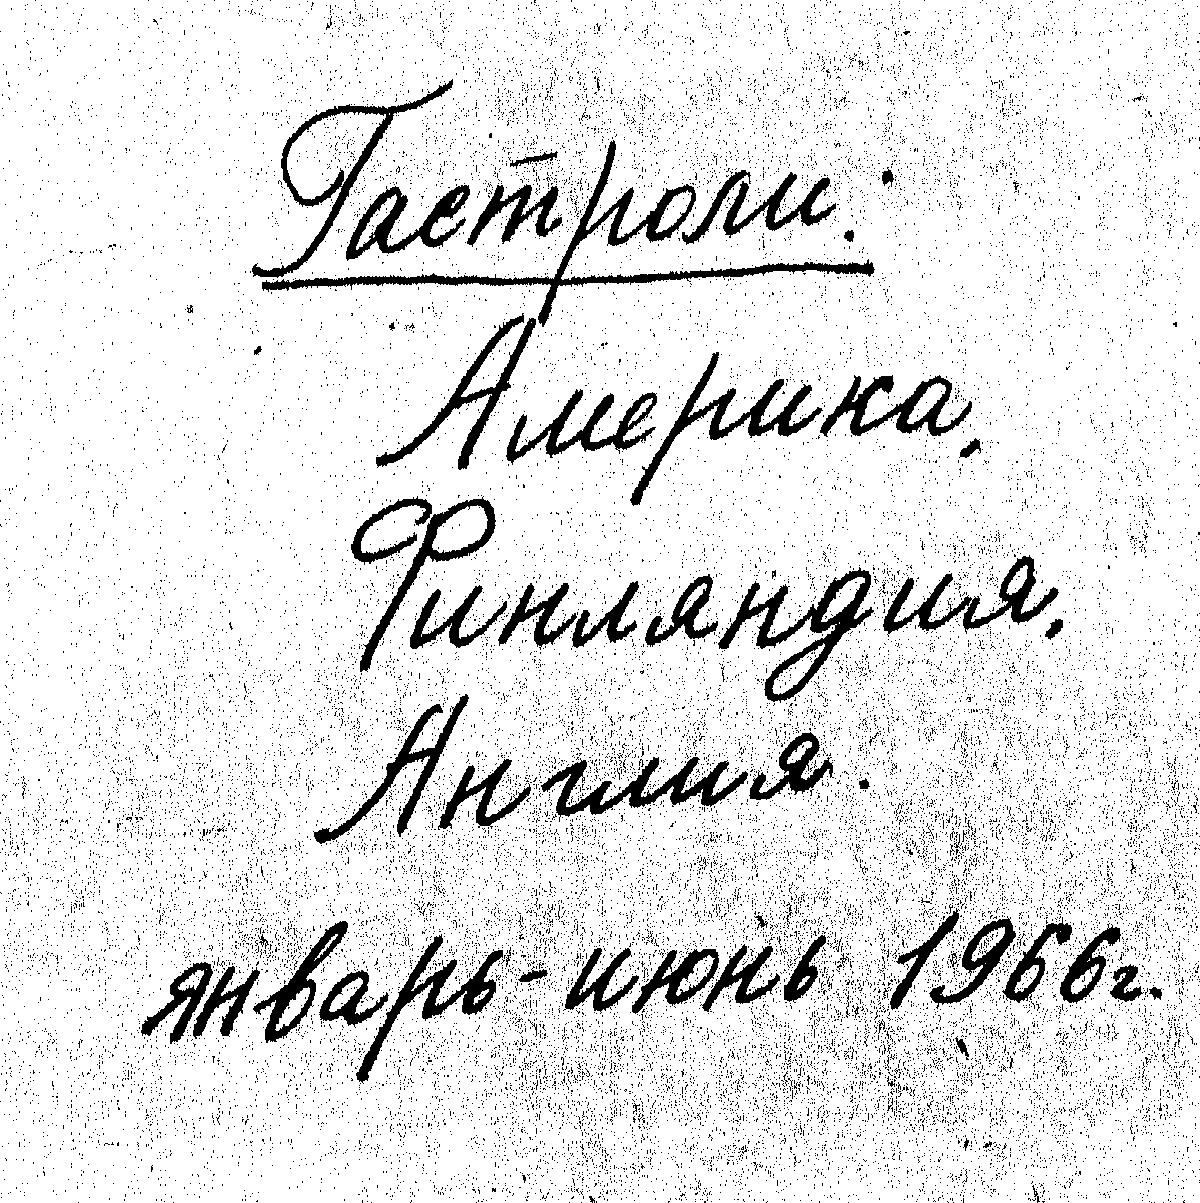 Гастроли.
Америка.
Финляндия.
Англия.
январь-июнь 1966г.